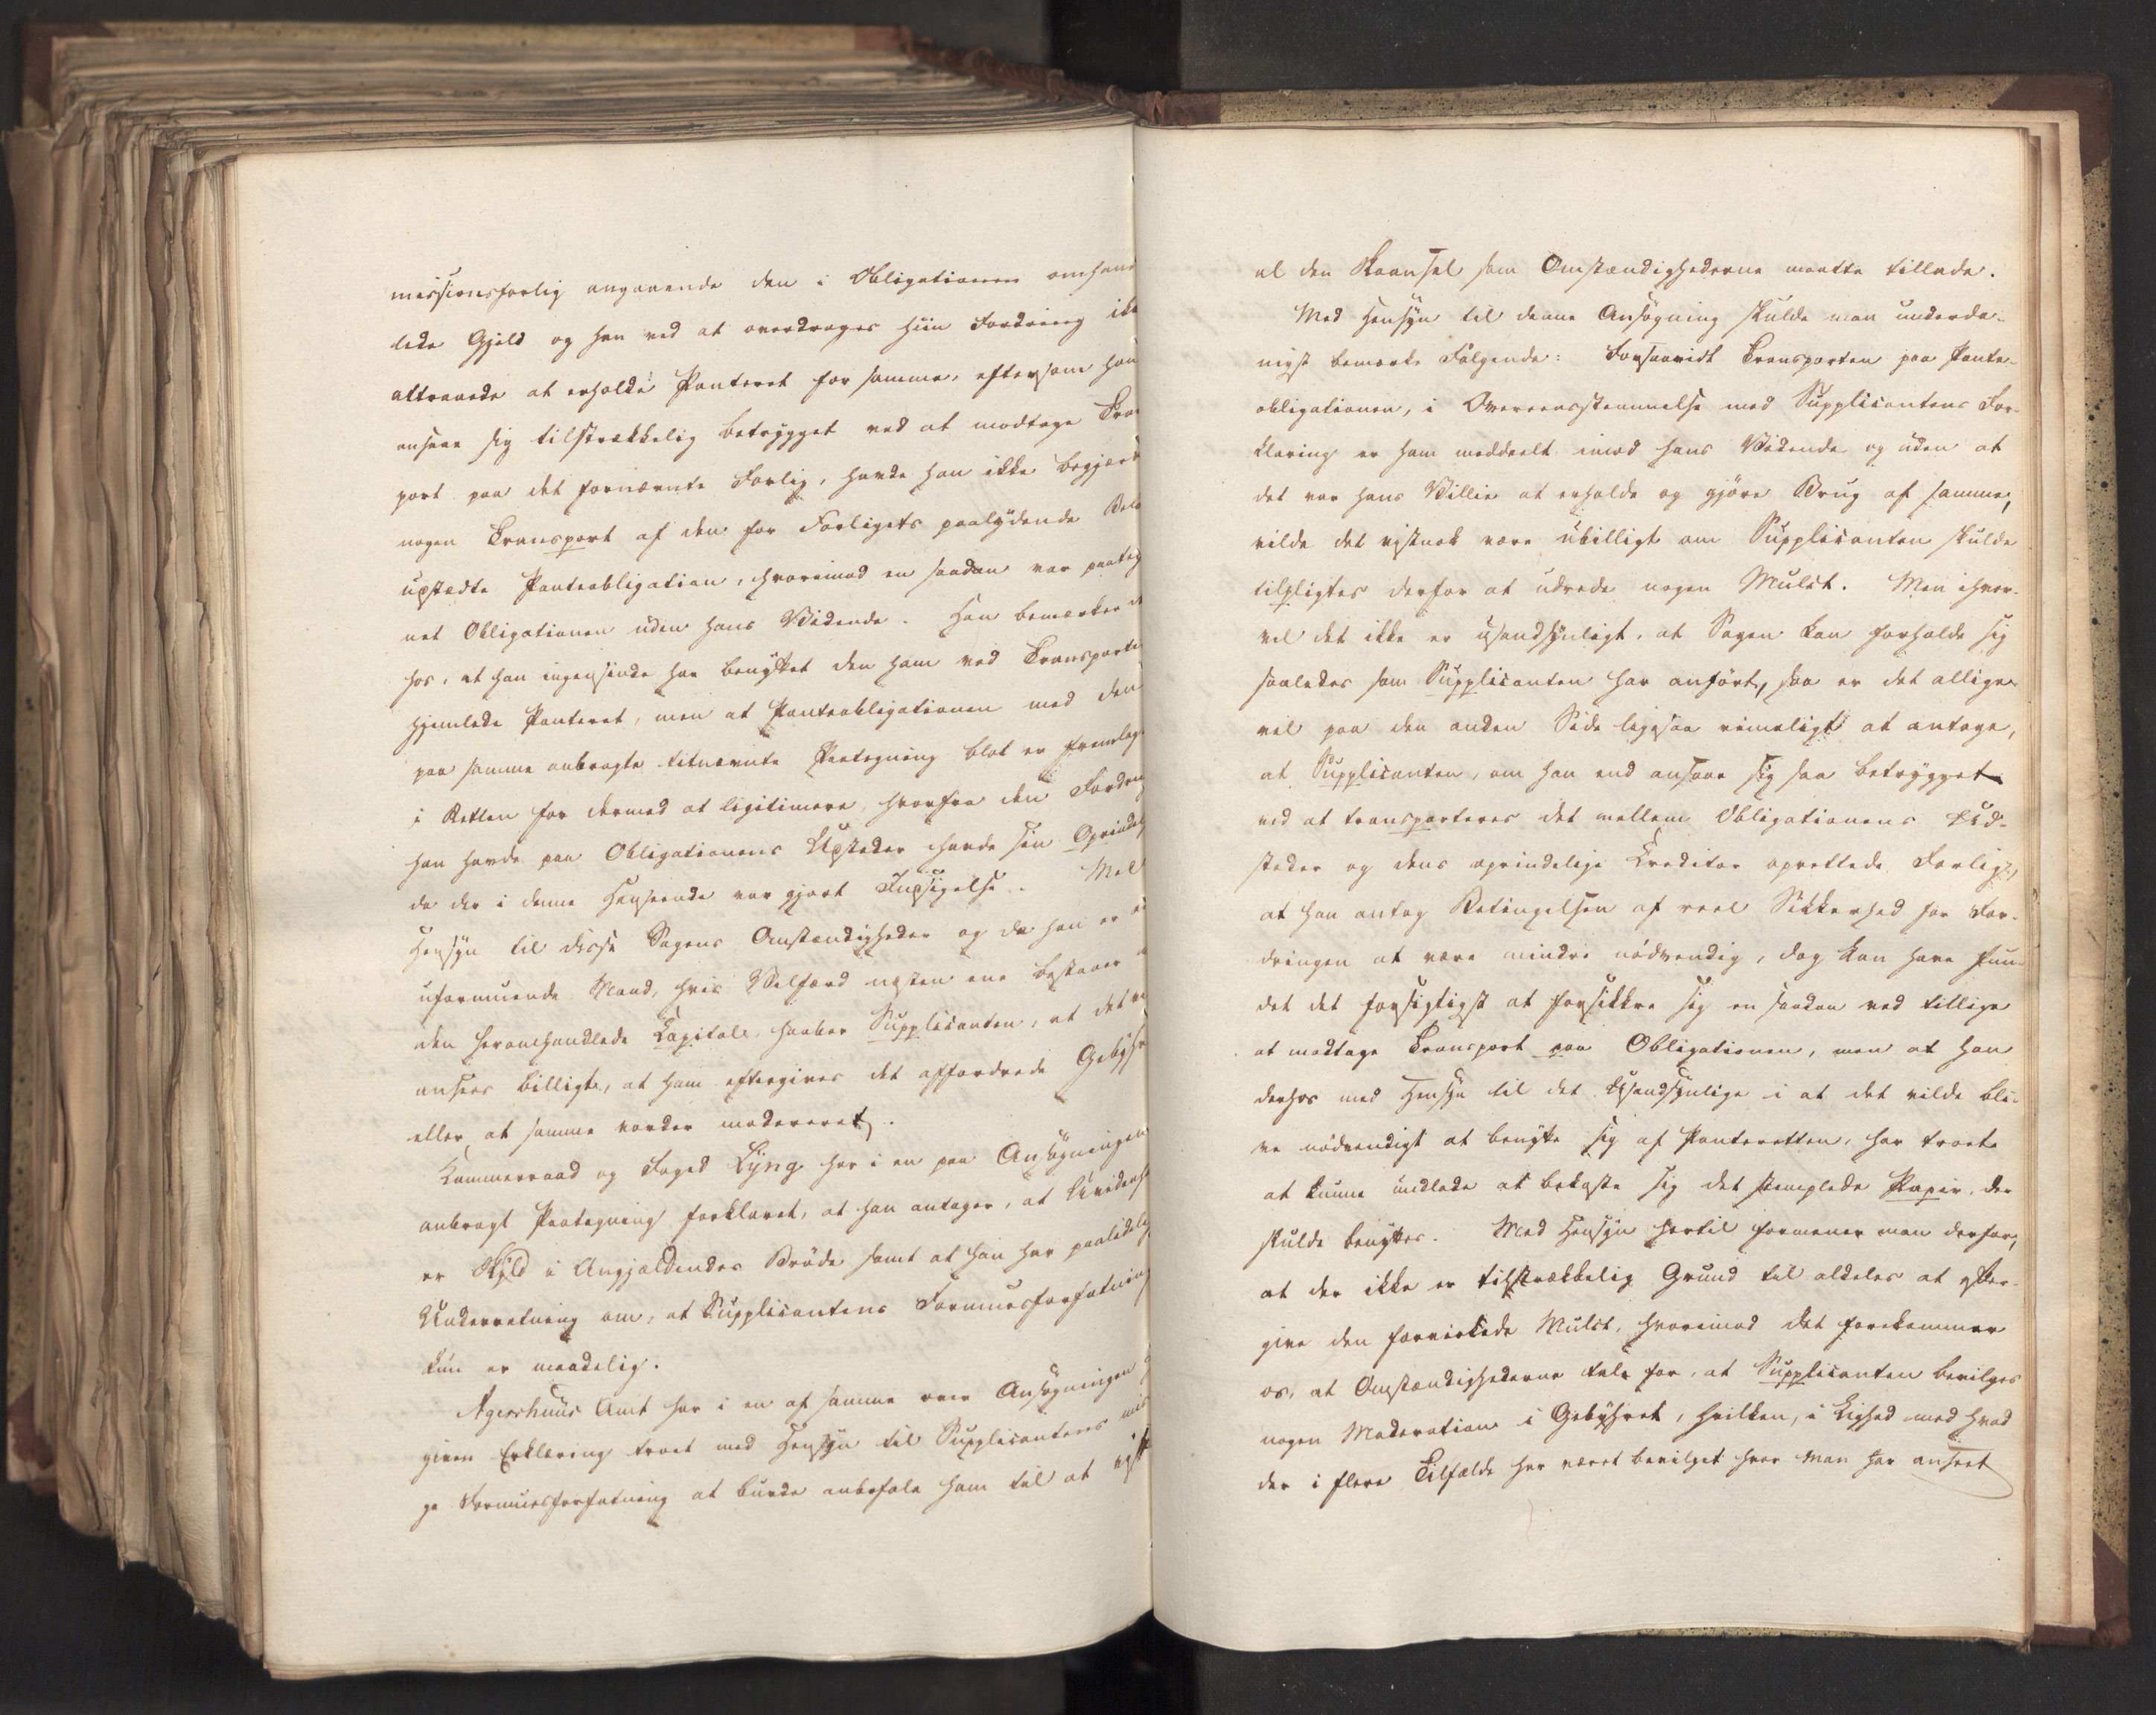 missionsforlig angaaende den i Obligationen omhand
lede Gjeld og han ved at overdrages hiin Fordring ikke
attraaede at erholde Panteret for samme, eftersom han
ansaae sig tilstrækkelig betrygget ved at modtage Trans
port paa det fornævnte Forlig, havde han ikke begjært
nogen Transport af den for Forligets paalydende Belø
upstædte Panteobligation, hvorimod en saadan var paateg
net Obligationen uden hans Vidende. Han bemærker der
hos, at han ingensinde har benyttet den ham ved Transporten
hjemlede Panteret, men at Panteobligationen med den
paa samme anbragte bemævnte Paategning blot er fremlagt
i Retten for dermed at ligitimere, hvorfra den Fordring
han havde paa Obligationens Udsteder havde sin Oprindelse
da der i denne Henseende var gjort Indsigelse. Med
Hensyn til disse Sagens Omstændigheder og da han er en
uformuende Mand, hvis Velfærd næsten ene bestaaer i
den heromhandlede Kapital, haaber Supplicanten, at det maa
ansees billigt, at ham eftergives det affordrede Gebyhr
eller at samme vorder modereret.
Kammerraad og Foged Lyng har i en paa Ansøgningen
anbragt Paategning forklaret, at han antager, at Uvidenhed
er Skyld i Angjældendes Brøde samt at han har paalidelig
Underretning om, at Supplicantens Formuesforfatning
kun er maadelig.
Agershuus Amt har i en af samme over Ansøgningen
given Erklæring troet med Hensyn til Supplicantens mis
ge Formuesforfatning at burde anbefale ham til at
al den Skaansel som Omstændighederne maatte tillade.
Med Hensyn til denne Ansøgning skulde man underda-
nigst bemærke Følgende: Forsaavidt Transporten paa Pante-
obligationen, i Overeensstemmelse med Supplicantens For-
klaring er ham meddeelt imod hans Vidende og uden at
det var hans Villie at erholde og gjøre Brug af samme,
vilde det vistnok være ubilligt om Supplicanten skulde
tilpligtes derfor at udrede nogen Mulct. Men ihvor-
vel det ikke er usandsynligt, at Sagen kan forholde sig
saaledes som Supplicanten har anført, saa er det allige
vel paa den anden Side ligesaa rimeligt at antage,
at Supplicanten, om han end ansaae sig saa betrygget
ved at transporteres det mellem Obligationens Ud-
steder og dens oprindelige Creditor oprettede Forlig,
at han antog Betingelsen af reel Sikkerhed for For-
dringen at være mindre nødvendig, dog kan have fun-
det det forsigtigst at forsikkre sig en saadan ved tillige
at modtage Transport paa Obligationen, men at han
derhos med Hensyn til det Usandsynlige i at det vilde bli-
ve nødvendigt at benytte sig af Panteretten, har troet
at kunne undlade at bekoste sig det stemplede Papir, der
skulde benyttes. Med Hensyn hertil formener man derfor,
at der ikke er tilstrækkelig Grund til aldeles at efter-
give den forvirkede Mulct, hvorimod det forekommer
os, at Omstændighederne tale for, at Supplicanten bevilges
nogen Moderation i Gebyhret, hvilken, i Lighed med hvad
der i flere Tilfælde har været bevilget hvor man har anseet